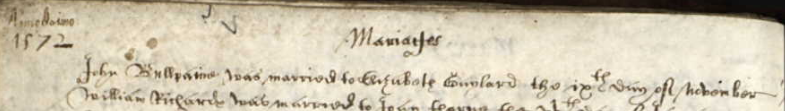 Anno domino
1572
Mariages
John Bullpaine was married to Elizabeth Guylard the ixth day of November
William Richards was married to Joan the